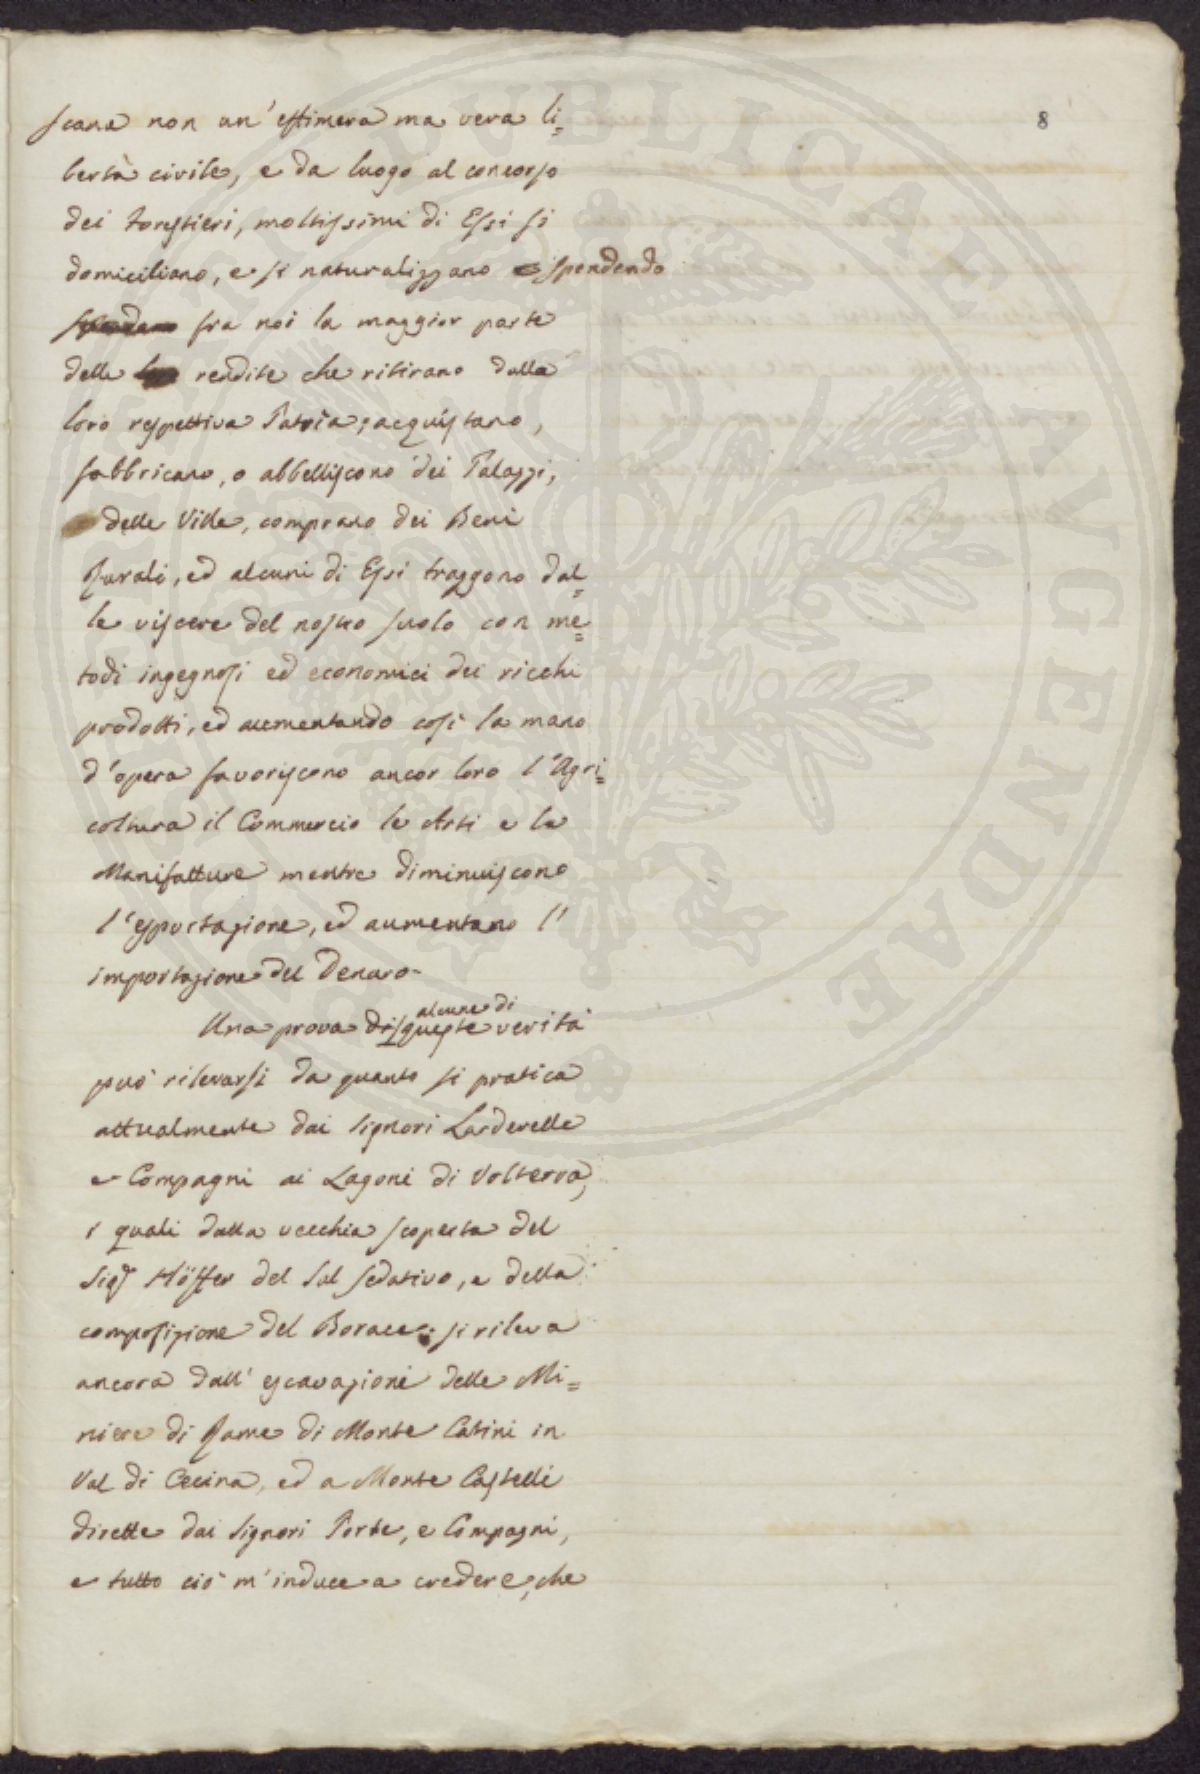 8
scana non un' effimera ma vera li=
bertà civile, e da luogo al concorso
dei Forestieri, moltissimi di Essi si
domiciliano, e si naturalizzano e spendendo
spendano fra noi la maggior parte
delle loro rendite che ritirano dalla
loro respettiva Patria; acquistano,
fabbricano, o abbelliscono dei Palazzi,
delle Ville, comprano dei Beni
Rurali, ed alcuni di Essi traggono dal=
le viscere del nostro suolo con me=
todi ingegnosi ed economici dei ricchi
prodotti, ed aumentando così la mano
d'opera favoriscono ancor loro l'Agri=
coltura il Commercio le Arti e le
Manifatture mentre diminuiscono
l'esportazione, ed aumentano l'
importazione del Denaro.
alcune di
Una prova di queste verità
può rilevarsi da quanto si pratica
attualmente dai Signori Larderelle
e Compagni ai Lagoni di Volterra,
i quali dalla vecchia scoperta del
Sigr Höffer del Sal sedativo, e della
composizione del Borace; si rileva
ancora dall' escavazioni delle Mi=
niere di Rame di Monte Catini in
Val di Cecina, ed a Monte Castelli
dirette dai Signori Porte, e Compagni,
e tutto ciò m'induce a credere, che
PUBLICAE AUGENDAE